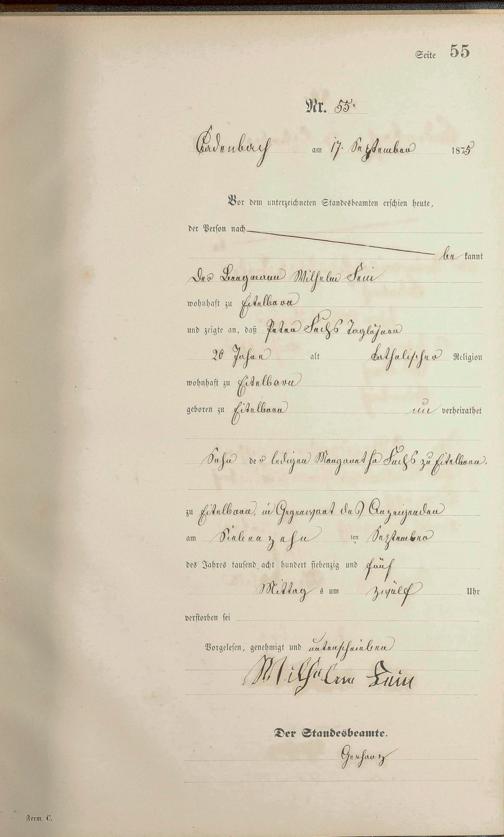 Seite 55
Nr. 55.
Cadenbach am 17. September 1875
Vor dem unterzeichneten Standesbeamten erschien heute,
der Person nach
be kannt
Der Bergmann Wilhelm
wohnhaft zu Eitelborn
und zeigte an, daß Peter Fuchs Taglöhner
26 Jahre alt katholischer Religion
wohnhaft zu Eitelborn
geboren zu Eitelborn un verheirathet
Sohn der ledigen Margaretha Fuchs zu Eitelborn.
zu Eitelborn, in Gegenwart des Anzeigenden
am Siebenzehn ten September
des Jahres tausend acht hundert siebenzig und fünf
Mittag s um zwölf Uhr
verstorben sei
Vorgelesen, genehmigt und unterschrieben
Wilhelm
Der Standesbeamte.
Form. C.